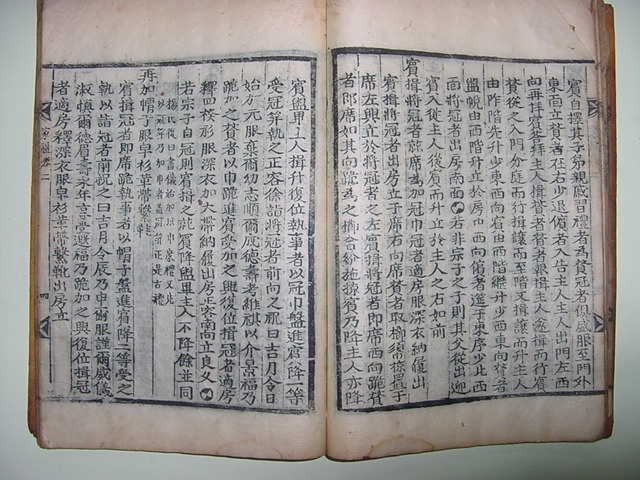 賓自擇其子弟親戚習禮者爲賛冠者俱盛服至門外
東面立賛者在右少退儐者入告主人主人出門左西
向再拜賓答拜主人揖賛者賛者報揖主人遂揖而行賓
賛從之入門分庭而行揖讓而至階又揖讓而升主人
由阼階先升少東西向賓由西階繼升少西東向賛者
盥帨由西階升立於房中西向儐者筵于東序少北西
面將冠者出房南面○若非宗子之子則其父從出迎
賓入從主人後賓而升立於主人之右如前
賓揖將冠者就席爲加冠巾冠者適房服深衣納履出
賓揖將冠者出房立于席右向席賛者取櫛掠置于
席左興立於將冠者之左賓揖將冠者即席西向跪賛
者即席如其向跪爲之櫛合紒施掠賓乃降主人亦降
賓盥畢主人揖升復位執事者以冠巾盤進賓降一等
受冠笄執之正容徐詣將冠者前向之祝曰吉月令日
始加元服棄爾幼志順爾成德壽考維祺以介景福乃
跪加之賛者以巾跪進賓受加之興復位揖冠者適房
釋四䙆衫服深衣加大帶納履出房正容南向立良久○
若宗子自冠則賓揖之就席賓降盥畢主人不降餘並同
再加帽子服皁衫革帶繫鞋
楊氏復曰書儀始加
賓揖冠者即席跪執事者以帽子盤進賓降二等受之
執以詣冠者前祝之曰吉月令辰乃申爾服謹爾威儀
淑愼爾德眉壽永年享受遐福乃跪加之興復位揖冠
者適房釋深衣服皁衫革帶繫鞋出房立